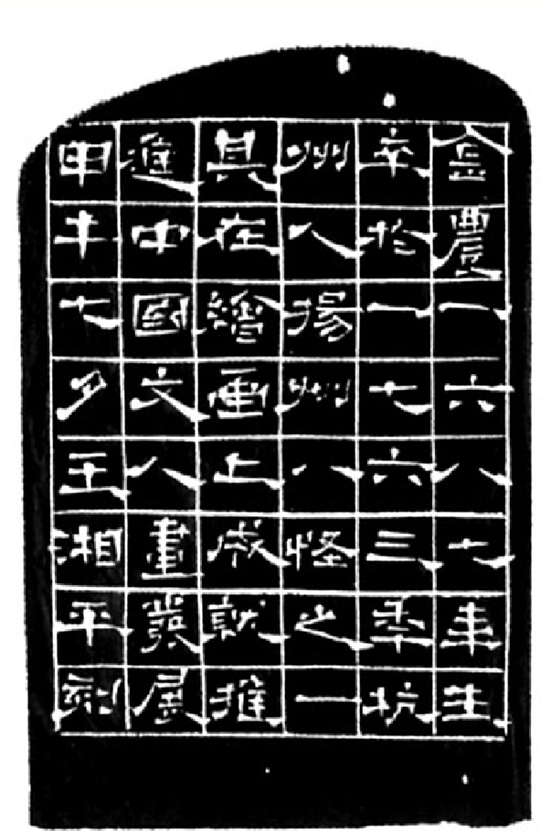 金農一六八七年生
卒於一七六三年杭
州人揚州八怪之一
其在繪画上成就推
進中國文人畫發展
甲午七夕王湘平刻